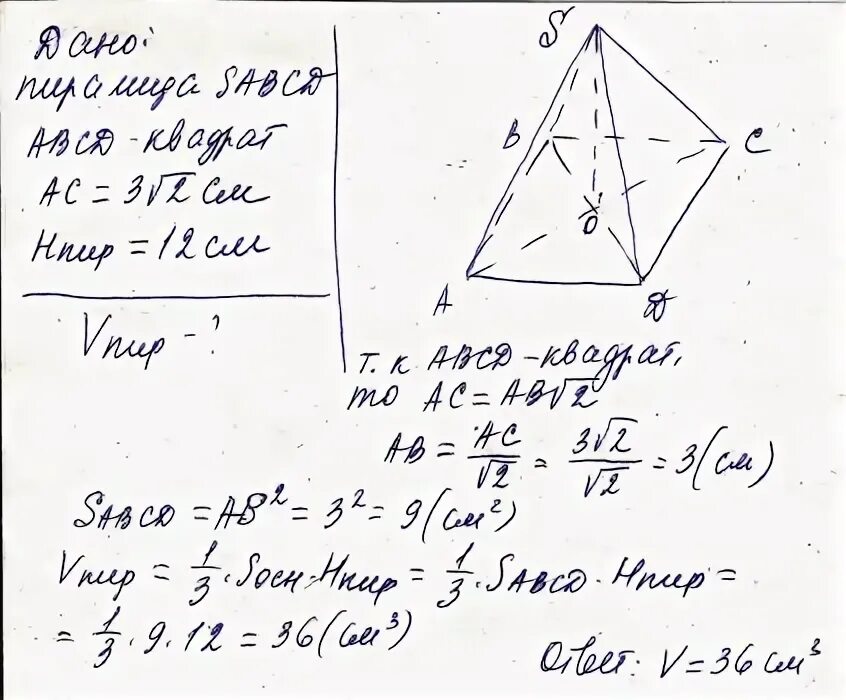 Дано:
пирамида SABCD
ABCD - квадрат
AC = 3√2 см
Hпир = 12 см
Vпир - ?
S
B
C
O
A
D
т.к ABCD - квадрат,
то AC = AB√2
AB = AC/√2 = 3√2/√2 = 3 (см)
SABCD = AB² = 3² = 9 (см²)
Vпир = 1/3 · Sосн · Hпир = 1/3 · SABCD · Hпир =
= 1/3 · 9 · 12 = 36 (см³)
Ответ: V = 36 см³